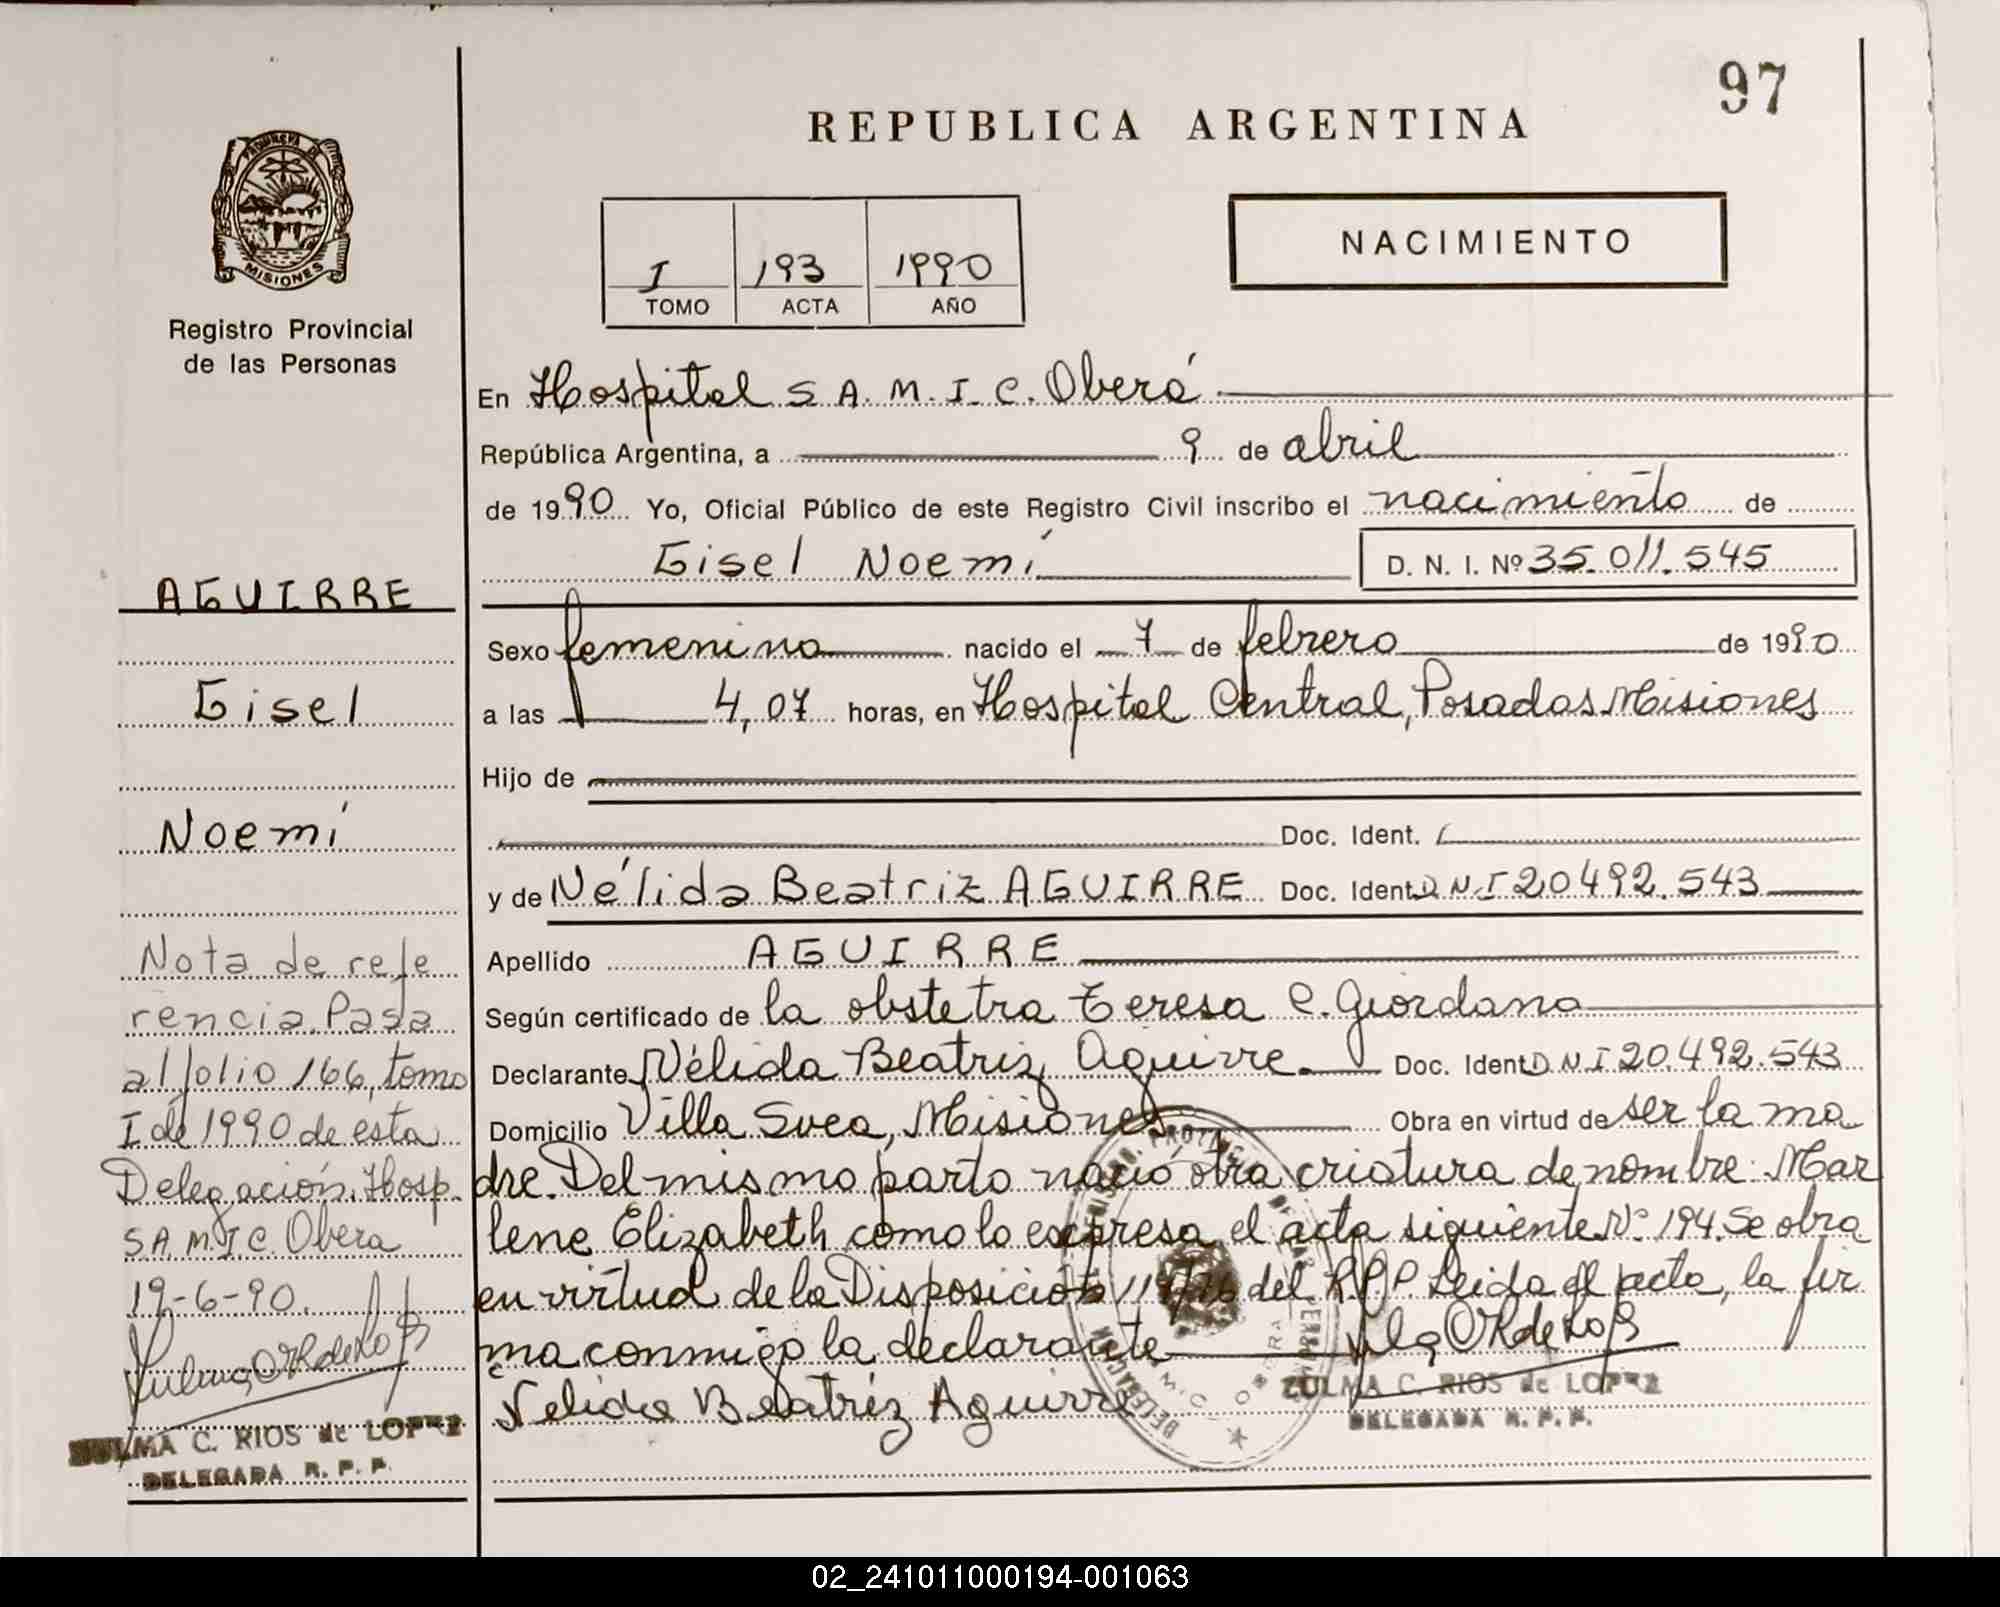 97
REPUBLICA ARGENTINA
PROVINCIA DE
MISIONES
Registro Provincial
de las Personas
NACIMIENTO
I 193 1990
TOMO ACTA AÑO
En Hospital S.A.M.I.C. Oberá
República Argentina, a 9 de abril
de 1990 Yo, Oficial Público de este Registro Civil inscribo el nacimiento de
Gisel Noemí D. N. I. Nº 35.011.545
Sexo femenino nacido el 7 de febrero de 1990
a las 4,07 horas, en Hospital Central, Posadas Misiones
Hijo de
Doc. Ident.
y de Nélida Beatriz AGUIRRE Doc. Ident. DNI 20.492.543
Apellido AGUIRRE
Según certificado de la obstetra Teresa C. Giordano
Declarante Nélida Beatriz Aguirre. Doc. Ident. DNI 20.492.543
Domicilio Villa Svea, Misiones Obra en virtud de ser la ma
dre. Del mismo parto nació otra criatura de nombre: Mar
lene Elizabeth como lo expresa el acta siguiente Nº 194. Se obra
en virtud de la Disposición del R.P.P. Leida el acta, la fir
ma conmigo la declarante
Nelida Beatriz Aguirre
ZULMA C. RIOS de LOPEZ
DELEGADA R. P. P.
AGUIRRE
Gisel
Noemí
Nota de refe
rencia. Pasa
al folio 166, tomo
I de 1990 de esta
Delegación. Hosp.
S.A.M.I.C. Oberá
19-6-90.
ZULMA C. RIOS de LOPEZ
DELEGADA R. P. P.
02_241011000194-001063